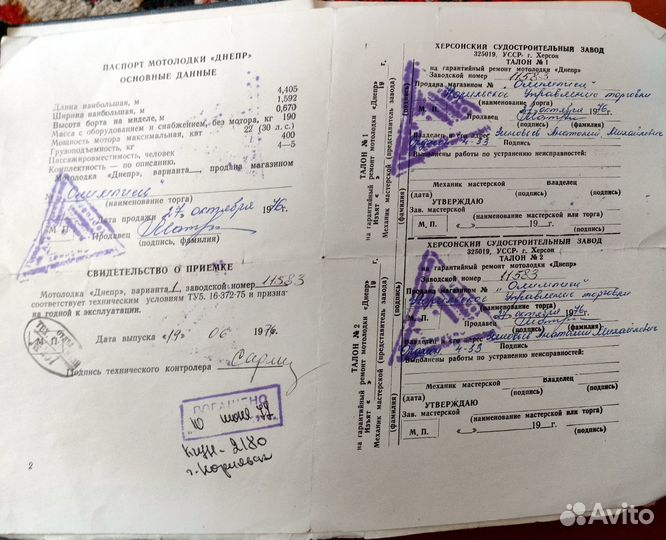 ПАСПОРТ МОТОЛОДКИ «ДНЕПР»
ОСНОВНЫЕ ДАННЫЕ
Длина наибольшая, м 4,405
Ширина наибольшая, м 1,592
Высота борта на миделе, м 0,670
Масса с оборудованием и снабжением, без мотора, кг 190
Мощность мотора максимальная, квт 22 (30 л. с.)
Грузоподъемность, кг 400
Пассажировместимость, человек 4—5
Комплектность — по описанию,
Мотолодка «Днепр», варианта продана магазином
№
(наименование торга)
Дата продажи 27 октября 1976г.
М. П. Продавец
(подпись, фамилия)
СВИДЕТЕЛЬСТВО О ПРИЕМКЕ
Мотолодка «Днепр», варианта 1 заводской номер 11583
соответствует техническим условиям ТУ5. 16-372-75 и призна-
на годной к эксплуатации.
Дата выпуска «19» 06 1976г.
М. П.
Подпись технического контролера
ПОГАШЕНО
10 июня 99
2180
2
ТАЛОН № 1
на гарантийный ремонт мотолодки «Днепр»
Изъят « » 19 г.
Механик мастерской (представитель завода)
(фамилия) (подпись)
ХЕРСОНСКИЙ СУДОСТРОИТЕЛЬНЫЙ ЗАВОД
325019, УССР- г. Херсон
ТАЛОН № 1
на гарантийный ремонт мотолодки «Днепр»
Заводской номер 11583
Продана магазином № "
Норильское Управление торговли
(наименование торга)
27 октября 1976г.
М. П. Продавец
(подпись) (фамилия)
Владелец и его адрес Зиновьев Анатолий Михайлович
4-33 Подпись
Выполнены работы по устранению неисправностей:
Механик мастерской Владелец
(дата) (подпись)
УТВЕРЖДАЮ
Зав. мастерской
(наименование мастерской или торга)
М, П, « » 19 г.
(подпись)
ТАЛОН № 2
на гарантийный ремонт мотолодки «Днепр»
Изъят « » 19 г.
Механик мастерской (представитель завода)
(фамилия) (подпись)
ХЕРСОНСКИЙ СУДОСТРОИТЕЛЬНЫЙ ЗАВОД
325019, УССР- г. Херсон
ТАЛОН № 2
на гарантийный ремонт мотолодки «Днепр»
Заводской номер 11583
Продана магазином № "
Норильское Управление торговли
(наименование торга)
27 октября 1976г.
М. П. Продавец
(подпись) (фамилия)
Владелец и его адрес Зиновьев Анатолий Михайлович
4-33 Подпись
Выполнены работы по устранению неисправностей:
Механик мастерской Владелец
(дата) (подпись)
УТВЕРЖДАЮ
Зав. мастерской
(наименование мастерской или торга)
М, П, « » 19 г.
(подпись)
Avito